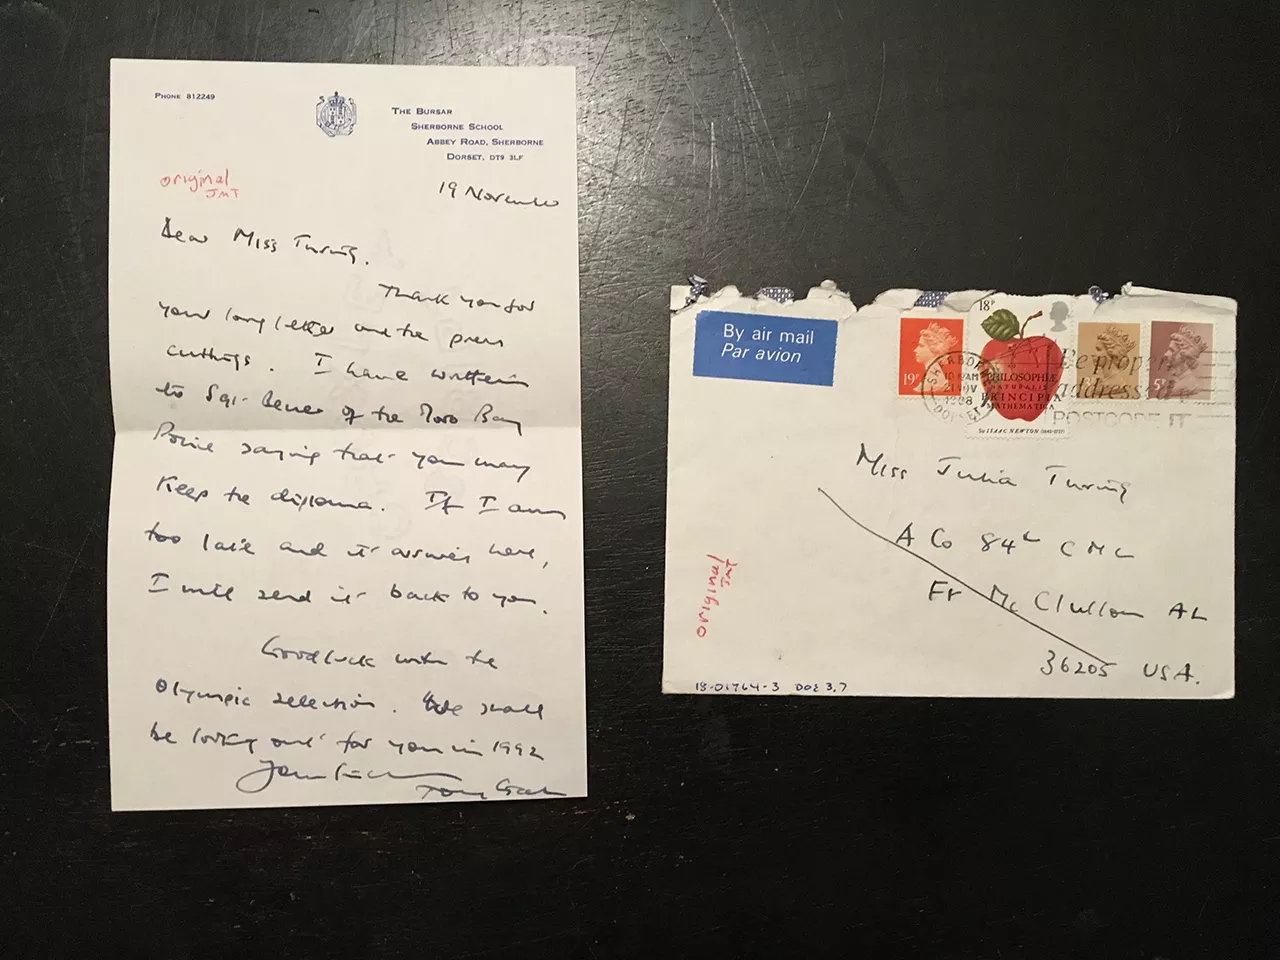 PHONE 812249
THE BURSAR
SHERBORNE SCHOOL
ABBEY ROAD, SHERBORNE
DORSET, DT9 3LF
original
JMT
19 November
Dear Miss Turing.
Thank you for
your long letter and the press
cuttings. I have written
to Sgt. of the Moro Bay
Police saying that you may
keep the diploma. If I am
too late and it arrives here,
I will send it back to you.
Good luck with the
Olympic selection. We shall
be looking out for you in 1992
Yours sincerely
Tony
By air mail
Par avion
19P
18P
PHILOSOPHIÆ
NATURALIS
PRINCIPIA
MATHEMATICA
Sir ISAAC NEWTON (1642-1727)
5P
SHERBORNE
10 AM
21 NOV
1988
DORSET
Be properly
addressed
POSTCODE IT
Miss Julia Turing
A Co 84th CML
Ft McClellan AL
36205 USA.
original
JMT
18-01764-3 DOE 3.7